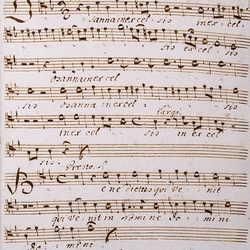 Osanna in excel _ sis in excel _
sis excel sis
Osanna in excel
sis Osanna in excel _
largo
in excel sis in excel sis
Presto
Benedictus qui venit
qui venit in nomine Do _ mini
Do _ mini